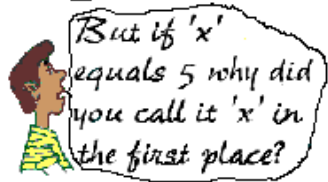 But if 'x'
equals 5 why did
you call it 'x' in
the first place?